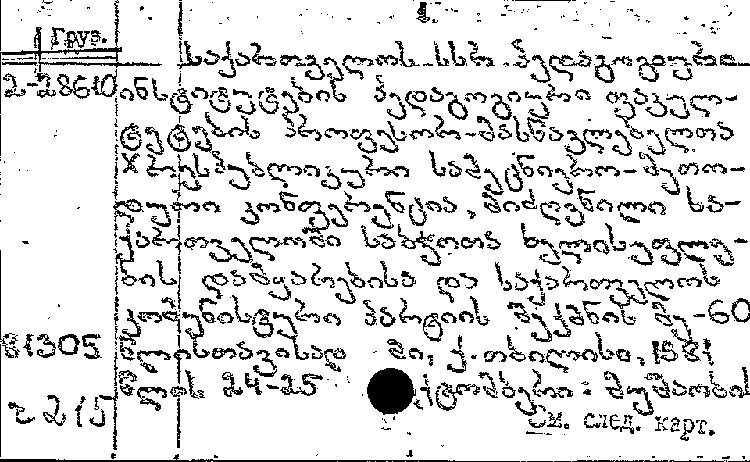 1.
Груз.
საქართველოს სსრ პედაგოგიური
2-28610 ინსტიტუტების პედაგოგიური ფაკულ-
ტეტების პროფესორ-მასწავლებელთა
რესპუბლიკური სამეცნიერო-მეთო-
დური კონფერენცია, მიძღვნილი სა-
ქართველოში საბჭოთა ხელისუფლე-
ბის დამყარებისა და საქართველოს
კომუნისტური პარტიის შექმნის მე-60
81305 წლისთავისად მი, ქ. თბილისი, 1981
წლის 24-25 ოქტომბერი : მუშაობის
г 215
См. след. карт.